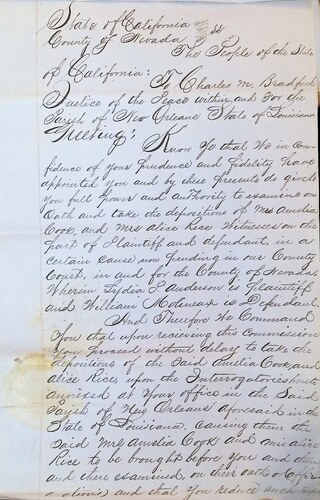 State of California
County of Nevada ss
The People of the State
of California: To Charles M. Bradford
Justice of the Peace within and For the
Parish of New Orleans State of Louisiana
Greeting: Know Ye that We in con-
fidence of your Prudence and Fidelity have
appointed you and by these presents do give
you full Power and Authority to examine on
Oath and take the depositions of Mrs Amelia
Cook, and Mrs Alice Rice Witnesses on the
part of Plaintiff and defendant, in a
certain cause now pending in our County
Court, in and for the County of Nevada
Wherein Lydia E Anderson is Plaintiff
and William Molineaux is Defendant.
And Therefore We Command
You that upon recieving this Commission
You Proceed without delay to take the
depositions of the Said Amelia Cook, and
Alice Rice, upon the Interrogatories hereto
annexed at Your office in the Said
Parish of New Orleans aforesaid in the
State of Louisiana, causing them the
Said Mrs Amelia Cook and Mrs Alice
Rice to be brought before you and then
and there examined, on their oaths or Affir-
mations and that you reduce such